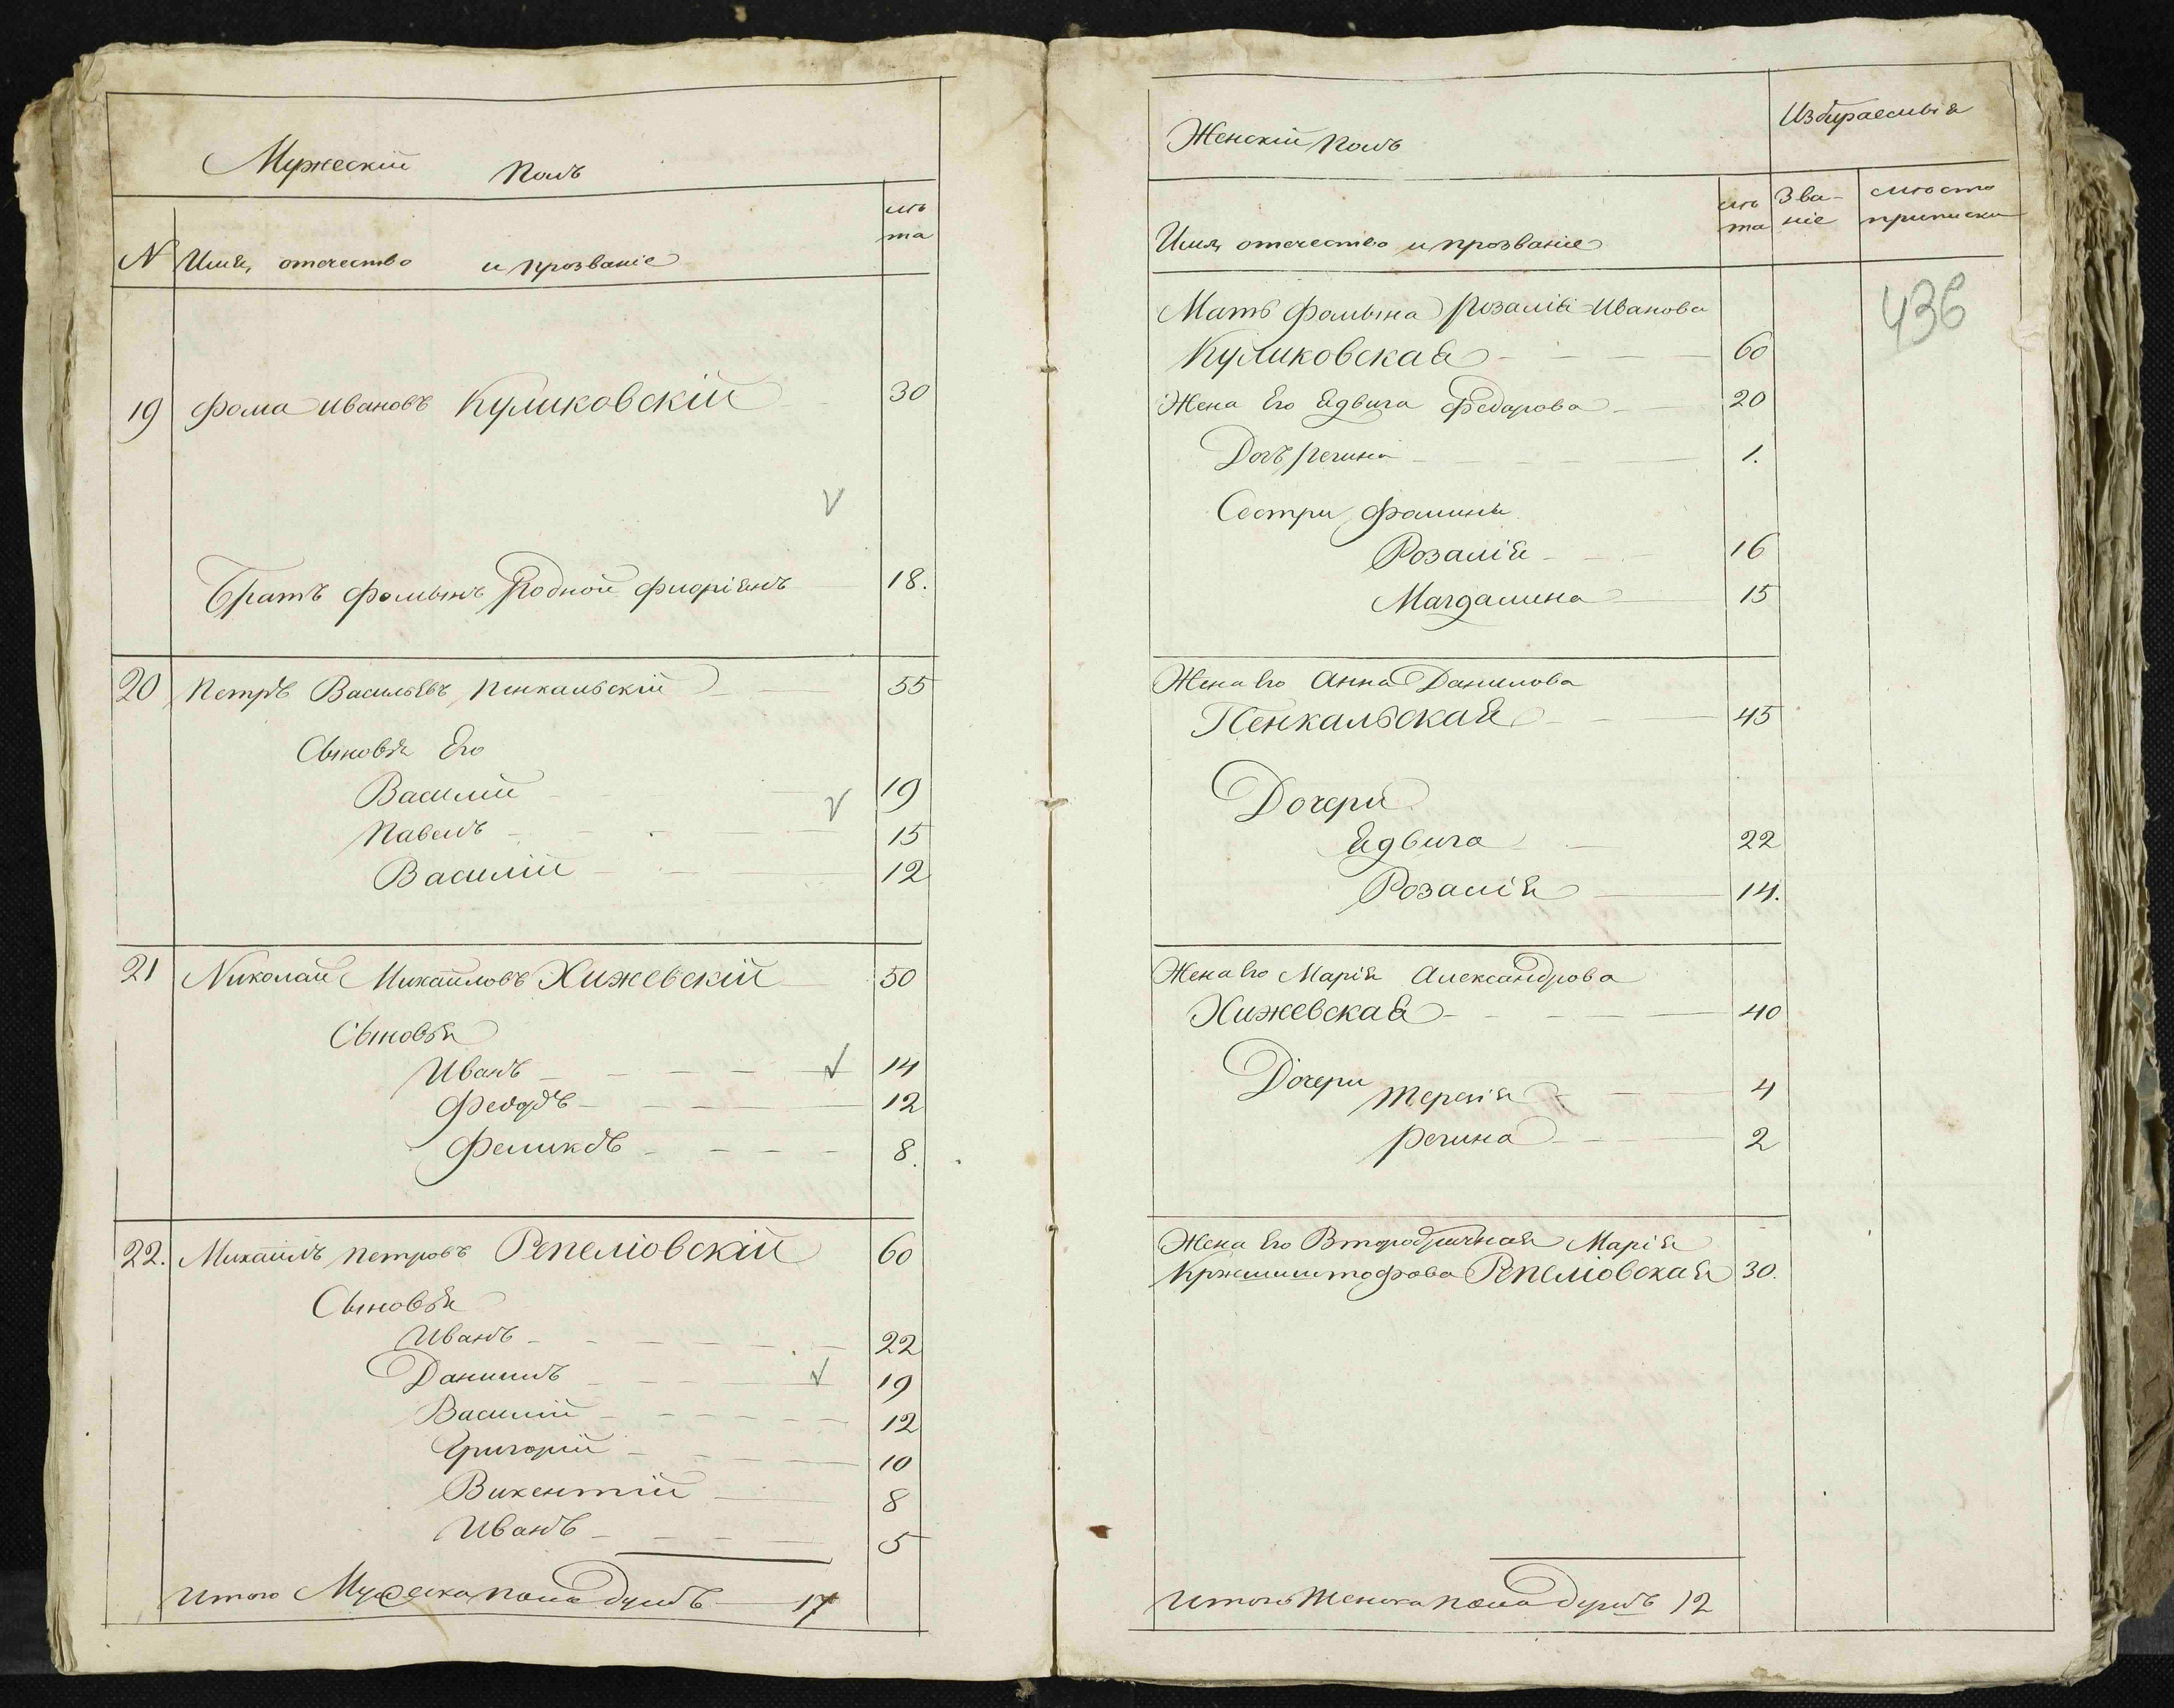 Мужескій полъ
№ Имя, отечество и прозваніе лѣ
та
19 Фома Ивановъ Куликовскій 30
Братъ Фомынъ Родной Флоріянъ 18.
20 Петръ Васильевъ Пенкальскій 55
Сыновья Его
Василій 19
Павелъ 15
Василій 12
21 Николай Михайловъ Хижевскій 50
Сыновья
Иванъ 14
Федоръ 12
Феликсъ 8.
22. Михаилъ Петровъ Репеліовскій 60
Сыновья
Иванъ 22
Данилъ 19
Василій 12
Григорій 10
Викентій 8
Иванъ 5
Итого Мужеска пола душъ 17
Женскій полъ
Избираемыя
Имя, отечество и прозваніе
лѣ
та
Зва-
ніе
мѣсто
приписки
436
Мать Фомына Розалія Иванова
Куликовская 60
Жена Его Ядвига Федорова 20
Дочъ Регина 1.
Сестри Фомины
Розалія 16
Магдалина 15
Жена Его Анна Данилова
Пенкальская 45
Дочери
Ядвига 22
Розалія 14.
Жена Его Марія Александрова
Хижевская 40
Дочери Терезія 4
Регина 2
Жена Его Второбрачная Марія
Кржиштофова Репеліовская 30.
Итого Женска пола душъ 12